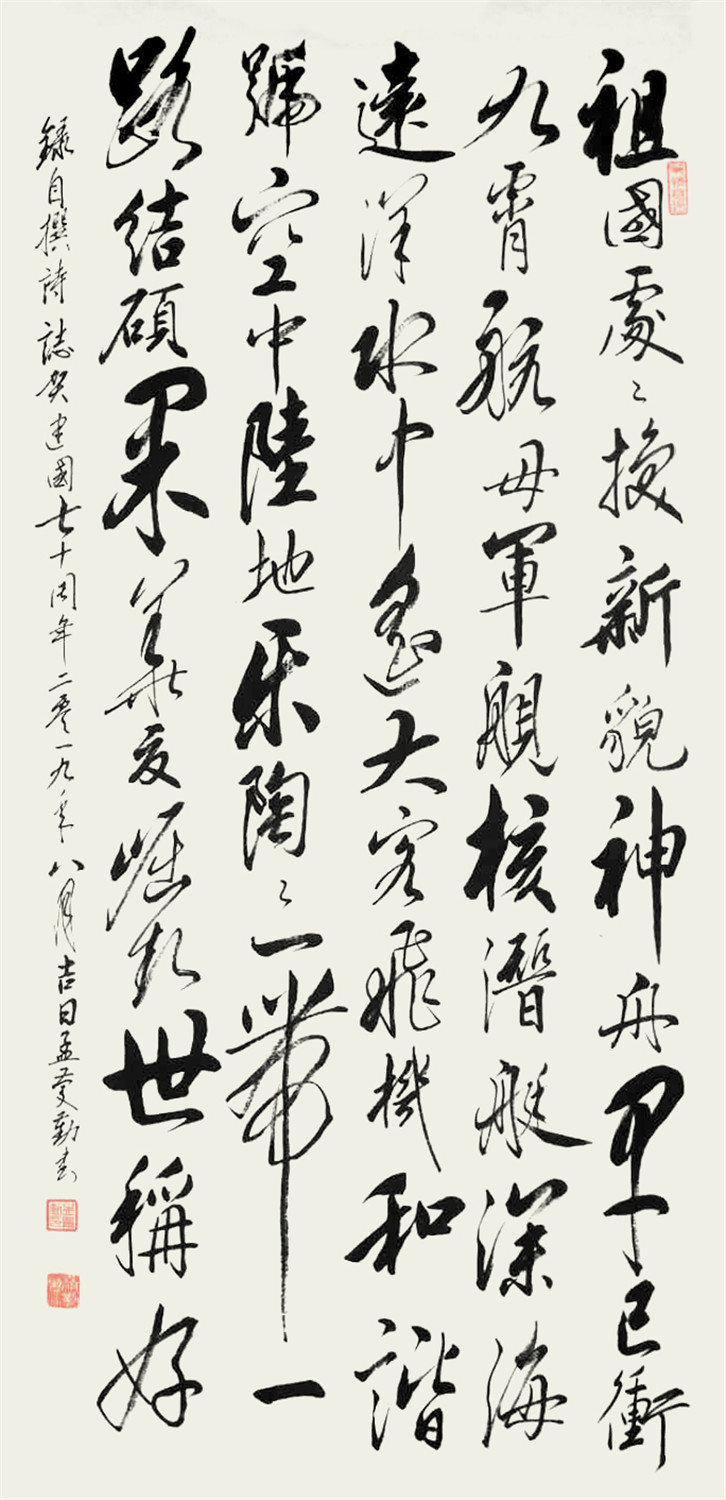 祖國處〻換新貌神舟早已衝
九霄航母軍艦核潛艇深海
遠洋水中遙大客飛機和諧
號空中陸地樂陶〻一帶一
路結碩果華夏崛起世稱好
錄自撰詩誌賀建國七十周年二零一九年八月吉日孟慶勤書